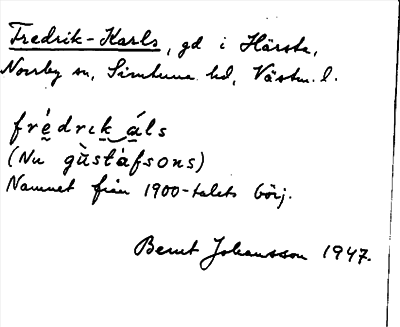 Fredrik-Karls, gd i Härsta,
Norrby sn, Simtuna hd, Västm. l.
frédrɩk‿áls
(Nu gùstáfsons)
Namnet från 1900-talets börj.
Bernt Johansson 1947.